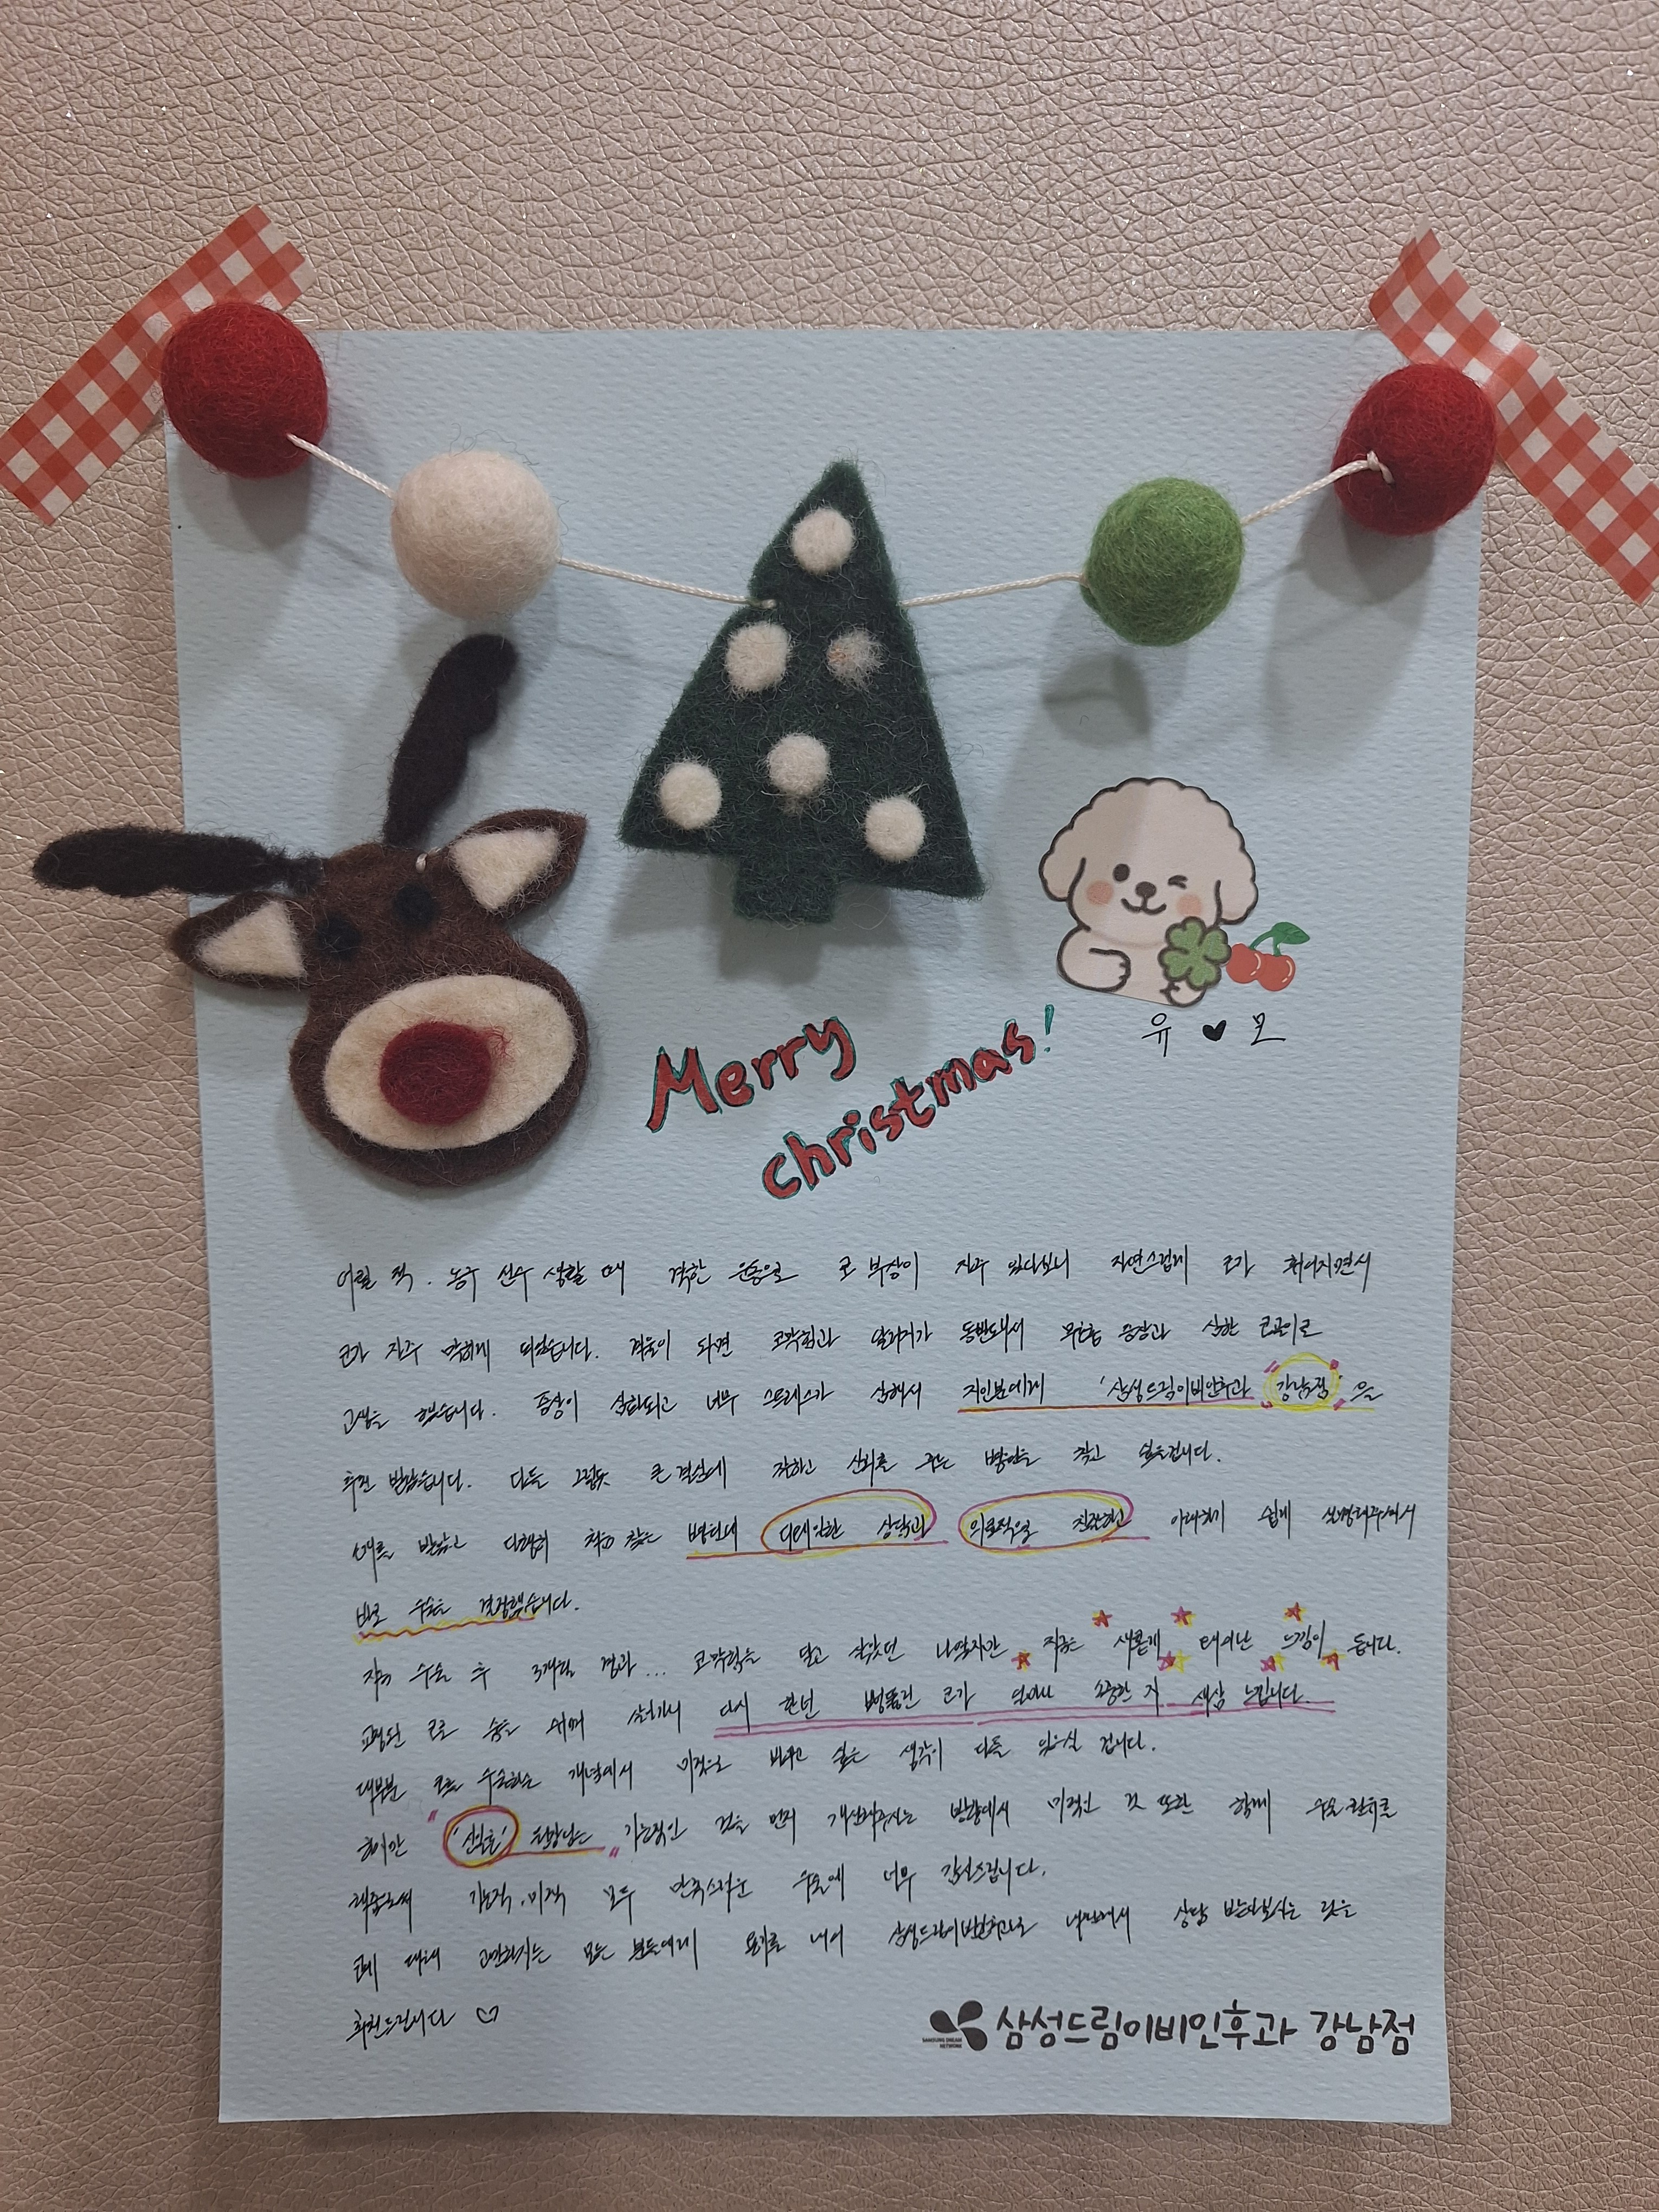 Merry
christmas!
유 ♥ 모
어릴 적, 농구 선수 생활 때 격한 운동으로 코 부상이 자주 있다보니 자연스럽게 코가 휘어지면서
코가 자주 막히게 되었습니다. 겨울이 되면 코막힘과 알러지가 동반돼서 무호흡 증상과 심한 코골이로
고생을 했습니다. 증상이 심화되고 너무 스트레스가 심해서 지인분에게 '삼성드림이비인후과 "강남점"'을
추천 받았습니다. 다들 그렇듯 큰 결심에 착하고 신뢰를 주는 병원을 찾고 싶을겁니다.
소개를 받았고 다행히 제가 찾는 병원에 디테일한 상담과 의료적으로 진찰하고 이해하기 쉽게 설명해주셔서
바로 수술을 결정했습니다.
지금 수술 후 3개월 경과... 코막힘을 달고 살았던 나였지만 지금은 새롭게 태어난 느낌이 듭니다.
교정된 코로 숨을 쉬며 살아가니 다시 한번 뻥뚫린 코가 얼마나 소중한 지 새삼 느낍니다.
대부분 코를 수술하는 개념에서 미적으로 바꾸고 싶은 생각이 다들 있으실 겁니다.
하지만 " 원장님은 " 기능적인 것을 먼저 개선해주시는 방향에서 미적인 것 또한 함께 수술 진행을
해줌으로써 기능적, 미적 모두 만족스러운 수술에 너무 감사드립니다.
코에 대해 고민하시는 모든 분들에게 용기를 내어 삼성드림이비인후과로 내원해서 상담 받아보시는 것을
추천드립니다 ♡
SAMSUNG DREAM
NETWORK
삼성드림이비인후과 강남점